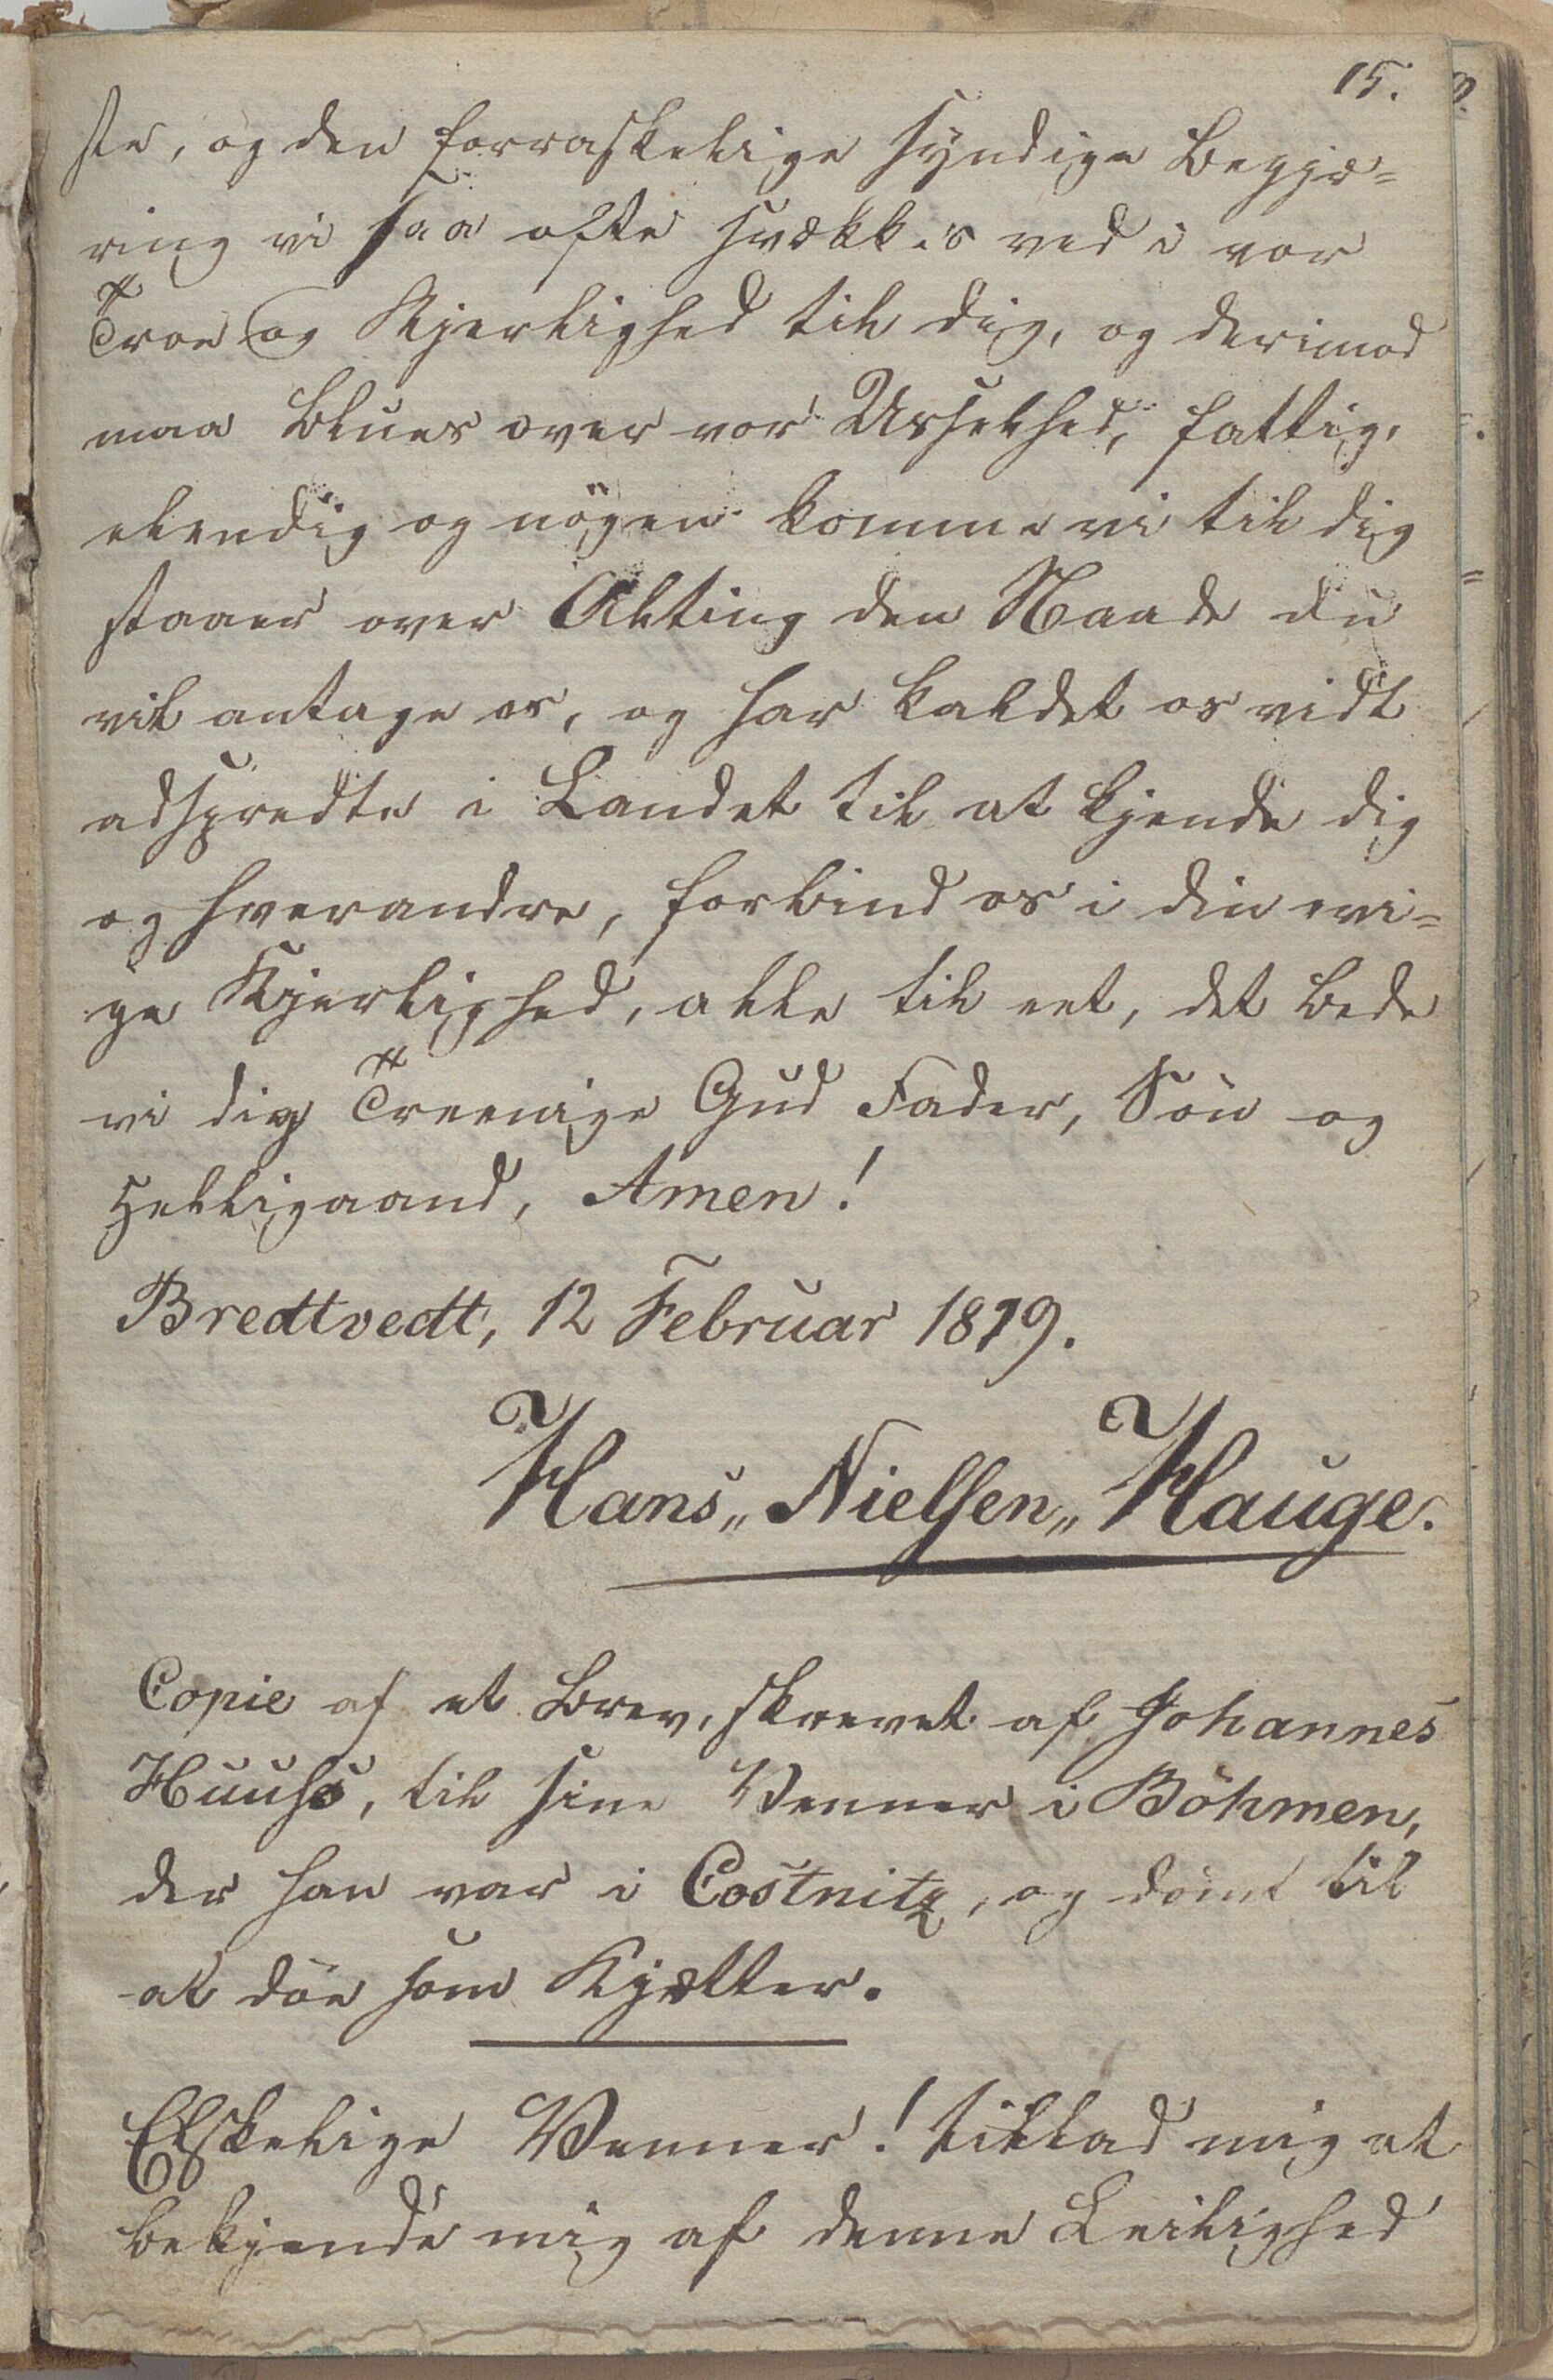 15.
ste, og den forraskelige syndige Begjæ=
ring vi saa ofte svækkes ved i vor
Troe og Kjerlighed til dig, og derimod
maa blues over vor Usselhed, fattig,
elendig og nøgen komme vi til dig
staaer over Alting den Naade du
vil antage os, og har kaldet os vidt
adspredte i Landet til at kjende dig
og hverandre, forbind os i din evi=
ge Kjerlighed, alle til eet, det bede
vi dig Treenige Gud Fader, Søn og
Helligaand, Amen!
Bredtvedt, 12 Februar 1819.
Hans„ Nielsen„ Hauge.
Copie af et Brev, skrevet af Johannes
Huuss, til sine Venner i Böhmen,
der han var i Costnitz, og dömt til
at döe som Kjætter.
Elskelige Venner! tillad mig at
bekjende mig af denne Leilighed